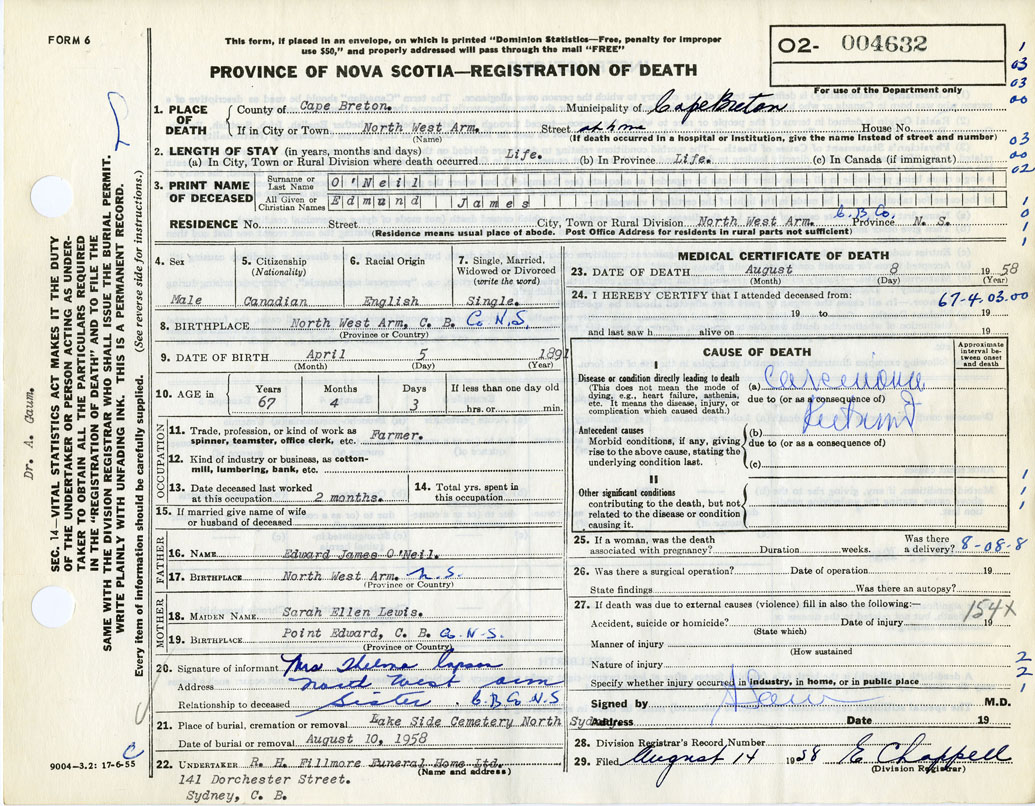 FORM 6
This form, if placed in an envelope, on which is printed "Dominion Statistics—Free, penalty for improper
use $50," and properly addressed will pass through the mail "FREE"
PROVINCE OF NOVA SCOTIA—REGISTRATION OF DEATH
02- 004632
For use of the Department only
1
03
03
00
03
00
02
1
0
1
1
1. PLACE OF DEATH
County of Cape Breton. Municipality of Cape Breton
If in City or Town North West Arm. Street at home House No.
(Name) (If death occurred in a hospital or institution, give the name instead of street and number)
2. LENGTH OF STAY (in years, months and days)
(a) In City, Town or Rural Division where death occurred Life. (b) In Province Life. (c) In Canada (if immigrant)
3. PRINT NAME OF DECEASED
Surname or Last Name O'Neil
All Given or Christian Names Edmund James
RESIDENCE No. Street City, Town or Rural Division North West Arm. C.B Co. Province N. S.
(Residence means usual place of abode. Post Office Address for residents in rural parts not sufficient)
4. Sex
Male
5. Citizenship (Nationality)
Canadian
6. Racial Origin
English
7. Single, Married, Widowed or Divorced (write the word)
Single.
8. BIRTHPLACE North West Arm, C. B. Co N.S.
(Province or Country)
9. DATE OF BIRTH April 5 1891
(Month) (Day) (Year)
10. AGE IN
Years Months Days If less than one day old
67 4 3 hrs. or min.
OCCUPATION
11. Trade, profession, or kind of work as
spinner, teamster, office clerk, etc. Farmer.
12. Kind of industry or business, as cotton-
mill, lumbering, bank, etc.
13. Date deceased last worked
at this occupation 2 months.
14. Total yrs. spent in
this occupation
15. If married give name of wife
or husband of deceased
FATHER
16. NAME Edward James O'Neil.
17. BIRTHPLACE North West Arm. N.S.
(Province or Country)
MOTHER
18. MAIDEN NAME Sarah Ellen Lewis.
19. BIRTHPLACE Point Edward, C. B. Co. N.S.
(Province or Country)
20. Signature of informant Mrs Thelma
Address North West arm
Relationship to deceased Sister. C.B Co N.S
21. Place of burial, cremation or removal Lake Side Cemetery North Sydney
Date of burial or removal August 10, 1958
22. UNDERTAKER R. H. Fillmore Funeral Home Ltd.
(Name and address)
141 Dorchester Street.
Sydney, C. B.
MEDICAL CERTIFICATE OF DEATH
23. DATE OF DEATH August 8 1958
(Month) (Day) (Year)
24. I HEREBY CERTIFY that I attended deceased from:
67-4.03.00
19 to 19
and last saw h alive on 19
CAUSE OF DEATH
Approximate interval between onset and death
I
Disease or condition directly leading to death
(This does not mean the mode of
dying, e.g., heart failure, asthenia,
etc. It means the disease, injury, or
complication which caused death.)
(a) Carcinoma
due to (or as a consequence of)
Rectum
Antecedent causes
Morbid conditions, if any, giving
rise to the above cause, stating the
underlying condition last.
(b)
due to (or as a consequence of)
(c)
II
Other significant conditions
contributing to the death, but not
related to the disease or condition
causing it.
1
1
1
25. If a woman, was the death
associated with pregnancy? Duration weeks. Was there a delivery? 8-08-8
26. Was there a surgical operation? Date of operation 19
State findings Was there an autopsy?
27. If death was due to external causes (violence) fill in also the following:—
154X
Accident, suicide or homicide? Date of injury 19
(State which)
Manner of injury
(How sustained
Nature of injury
Specify whether injury occurred in industry, in home, or in public place
2
2
1
Signed by M.D.
Address Date 19
28. Division Registrar's Record Number
29. Filed August 14 1958 E Chappell
(Division Registrar)
Dr. A. Gaum.
SEC. 14—VITAL STATISTICS ACT MAKES IT THE DUTY
OF THE UNDERTAKER OR PERSON ACTING AS UNDER-
TAKER TO OBTAIN ALL THE PARTICULARS REQUIRED
IN THE "REGISTRATION OF DEATH" AND TO FILE THE
SAME WITH THE DIVISION REGISTRAR WHO SHALL ISSUE THE BURIAL PERMIT.
WRITE PLAINLY WITH UNFADING INK. THIS IS A PERMANENT RECORD.
Every item of information should be carefully supplied. (See reverse side for instructions.)
C
9004—3.2: 17-6-55